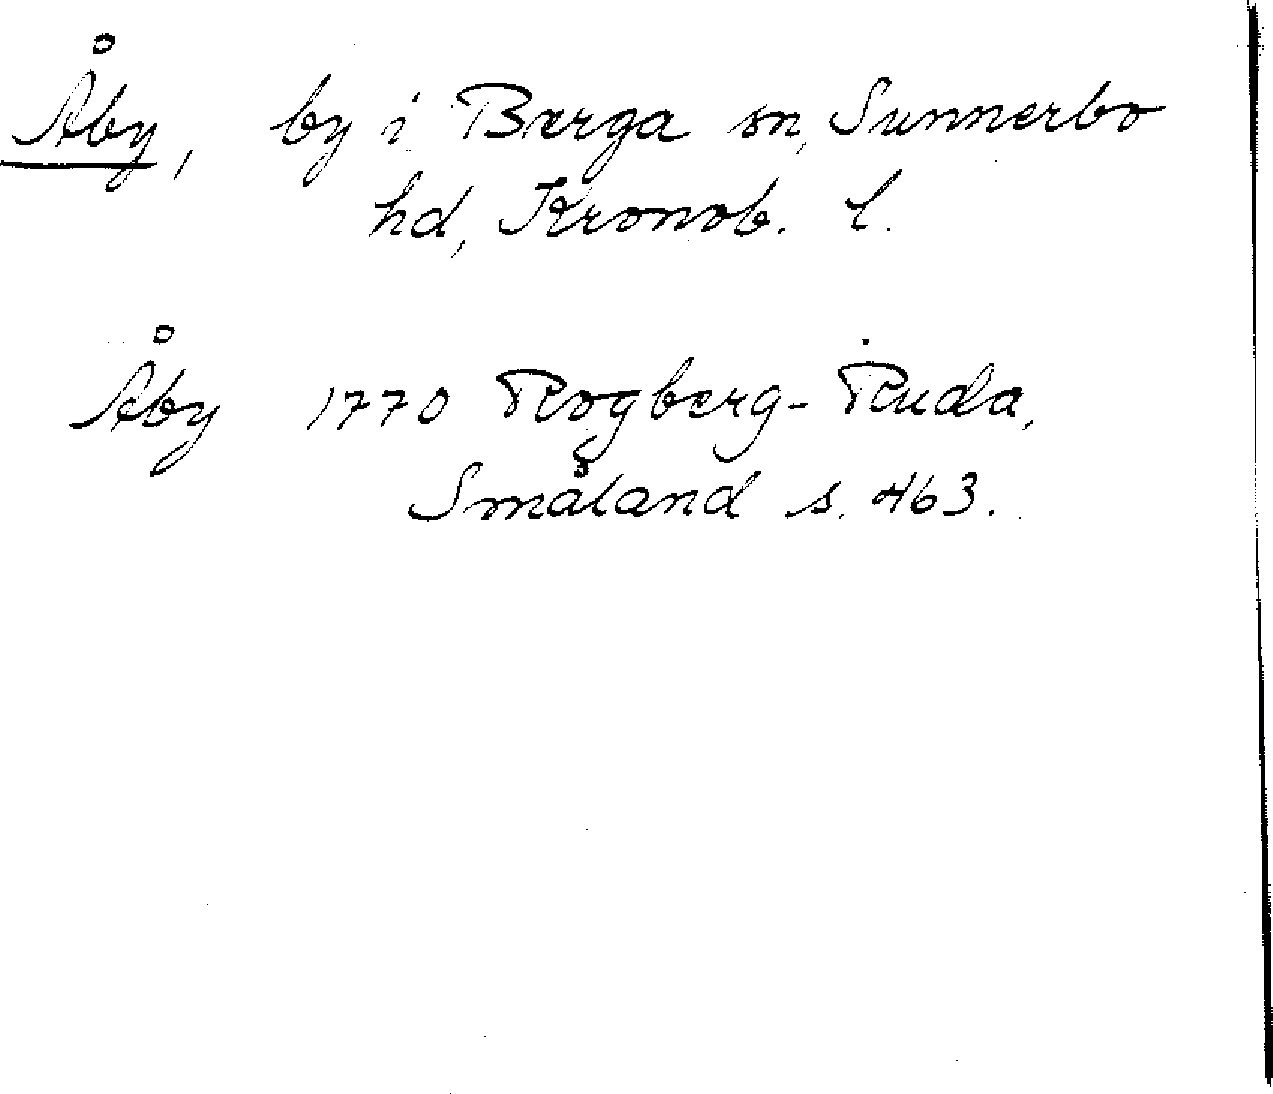 Åby, by i Berga sn, Sunnerbo
hd, Kronob. l.
Åby 1770 Rogberg-Ruda,
Småland s. 463.